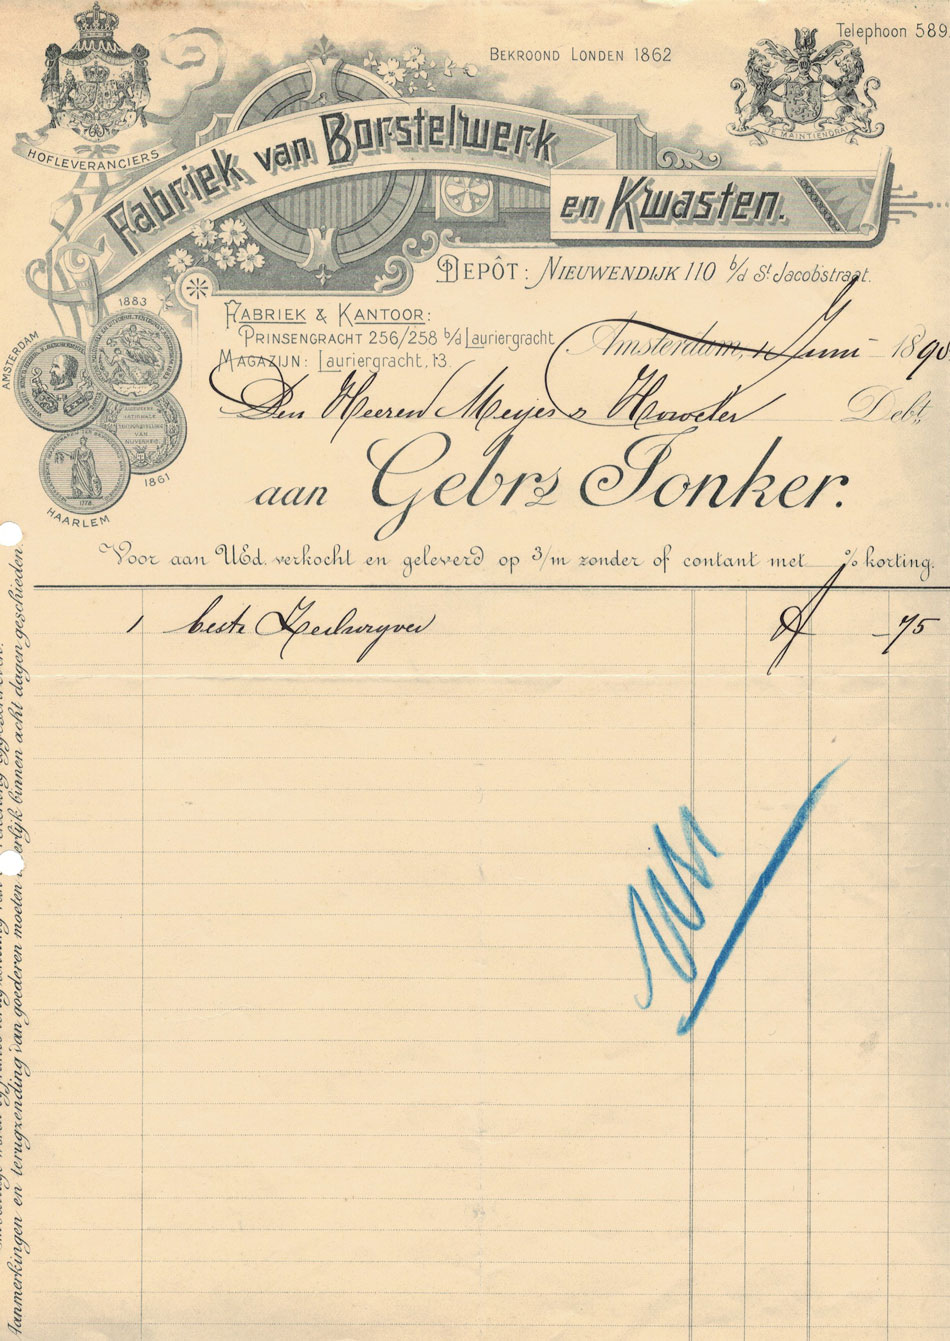 Telephoon 589.
BEKROOND LONDEN 1862
HOFLEVERANCIERS
JE MAINTIENDRAI
Fabriek van Borstelwerk
en Kwasten.
DEPÔT: NIEUWENDIJK 110 b/d St. Jacobstraat.
1883
AMSTERDAM
1861
HAARLEM
FABRIEK & KANTOOR:
PRINSENGRACHT 256/258 b/d Lauriergracht
MAGAZIJN: Lauriergracht, 13.
Amsterdam, Juni 1890
Den Heeren Meijes & Debt,
aan Gebrs Jonker.
Voor aan UEd. verkocht en geleverd op 3/m zonder of contant met % korting.
1 beste f - 75
Aanmerkingen en terugzending van goederen moeten uiterlijk binnen acht dagen geschieden.